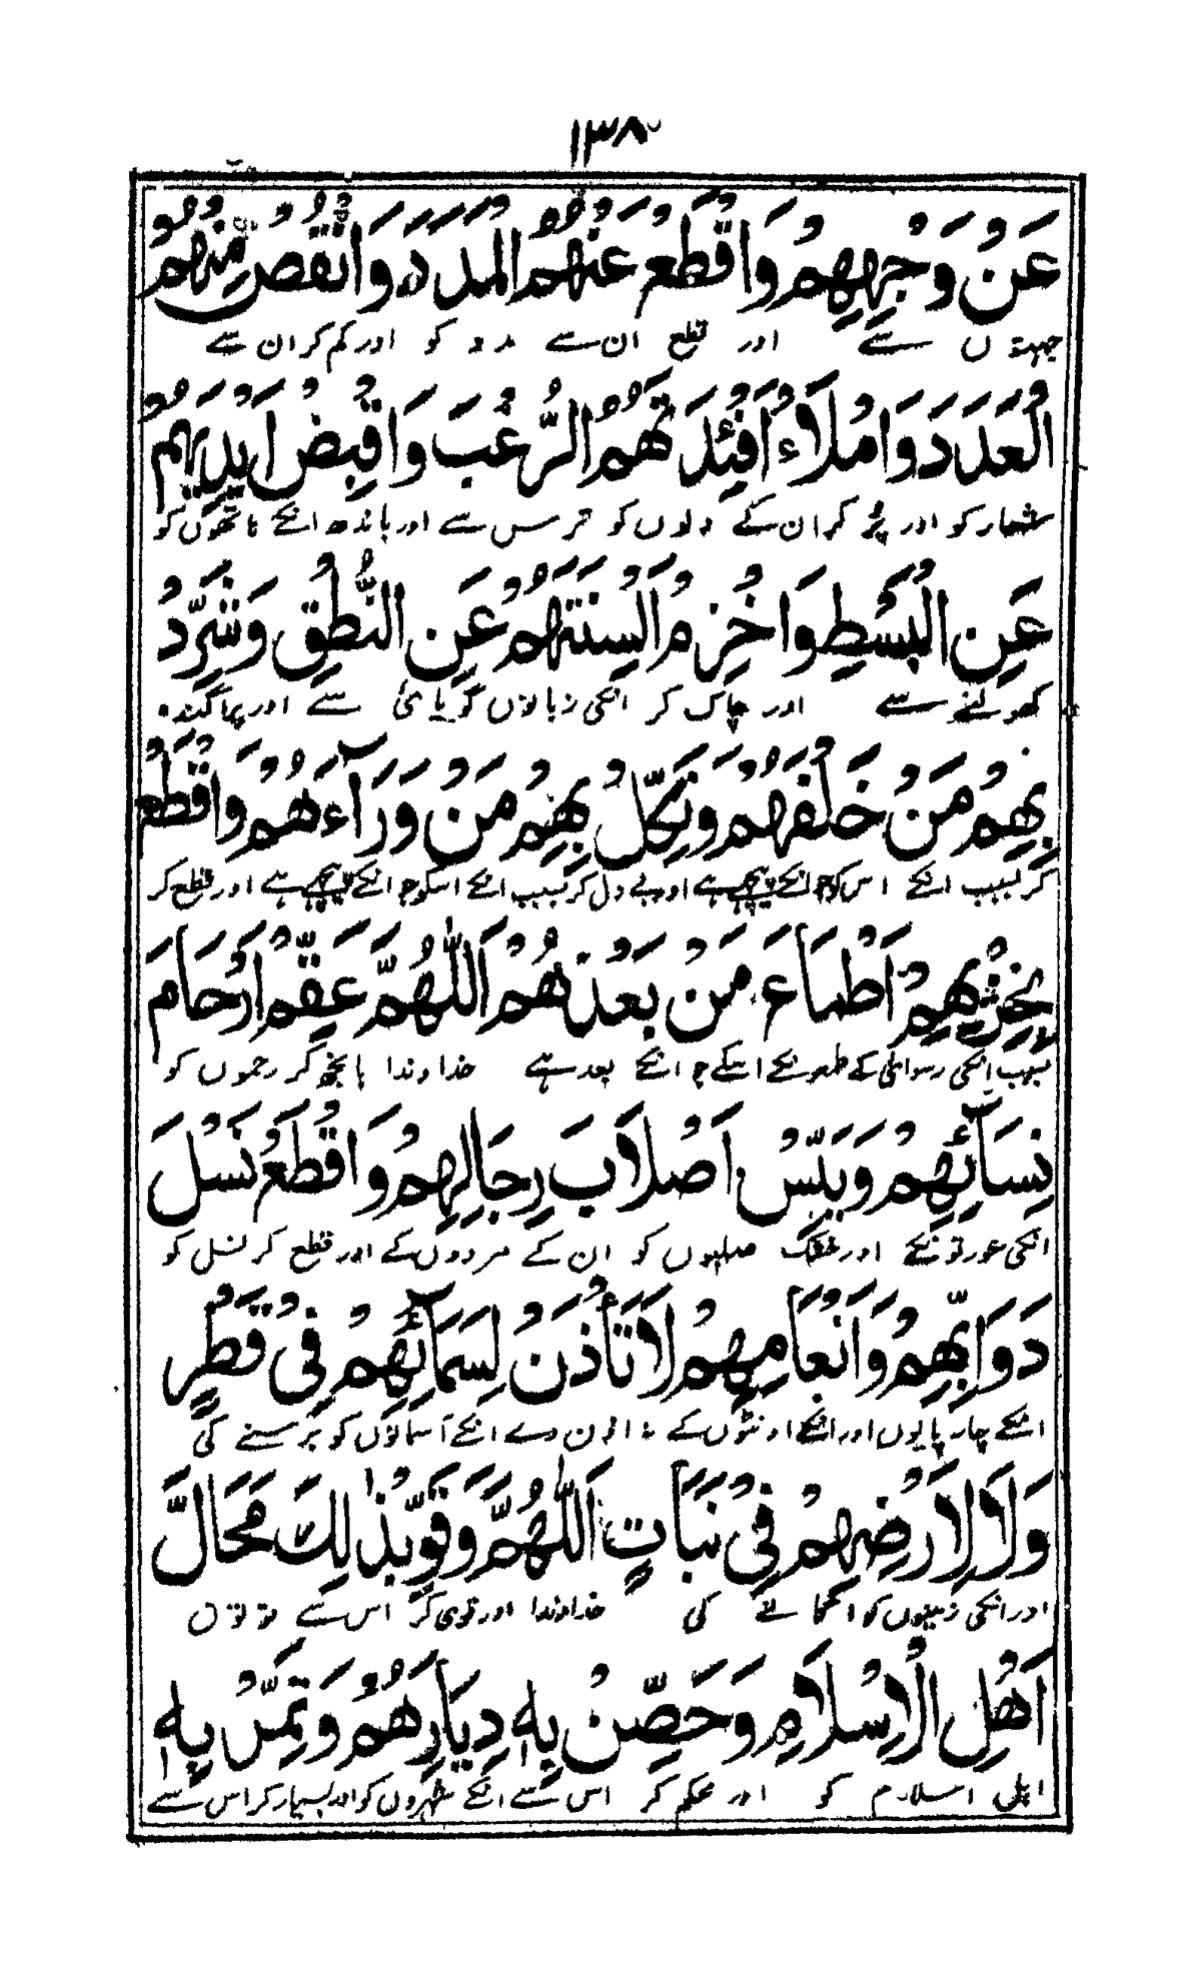 ١٣٨
عَنْ وَجْهِهِمْ وَاقْطَعْ عَنْهُمُ الْمَدَدَ وَانْقُصْ مِنْهُمُ
جہتوں سے اور قطع ان سے مدد کو اور کم کر ان سے
الْعَدَدَ وَامْلَاءْ اَفْئِدَتَهُمُ الرُّعْبَ وَاقْبِضْ اَيْدِيَهُمْ
شمار کو اور پُر کر ان کے دلوں کو ترس سے اور باندھ انکے ہاتھوں کو
عَنِ الْبَسْطِ وَاخْزِمْ اَلْسِنَتَهُمْ عَنِ النُّطْقِ وَشَرِّدْ
کھولنے سے اور چاک کر انکی زبانوں گویائی سے اور پراگندہ
بِهِمْ مَنْ خَلْفَهُمْ وَنَكِّلْ بِهِمْ مَنْ وَرَآءَهُمْ وَاقْطَعْ
کر بسبب انکے اس کو جو انکے پیچھے ہے اور بے دل کر بسبب انکے اسکو جو انکے پیچھے ہے اور قطع کر
بِخِزْيِهِمْ اَطْمَاعَ مَنْ بَعْدَهُمْ اَللّٰهُمَّ عَقِّمْ اَرْحَامَ
بسبب انکی رسوائی کے طمع اسکے جو انکے بعد ہے خداوندا بانجھ کر رحموں کو
نِسَآئِهِمْ وَيَبِّسْ اَصْلَابَ رِجَالِهِمْ وَاقْطَعْ نَسْلَ
انکی عورتونکے اور خشک صلبوں کو ان کے مردوں کے اور قطع کر نسل کو
دَوَابِّهِمْ وَاَنْعَامِهِمْ لَا تَأْذَنْ لِسَمَآئِهِمْ فِىْ قَطْرٍ
انکے چار پایوں اور انکے اونٹوں کے نہ اذن دے انکے آسمانوں کو برسنے کی
وَلَا لِاَرْضِهِمْ فِىْ نَبَاتٍ اَللّٰهُمَّ وَقَوِّ بِذٰلِكَ مَحَالَّ
اور انکی زمینوں کو اگانے کی خداوندا اور قوی کر اس سے قوتوں
اَهْلِ الْاِسْلَامِ وَحَصِّنْ بِهٖ دِيَارَهُمْ وَثَمِّرْ بِهٖ
اہل اسلام کو اور محکم کر اس سے انکے شہروں کو اور بسیار کر اس سے